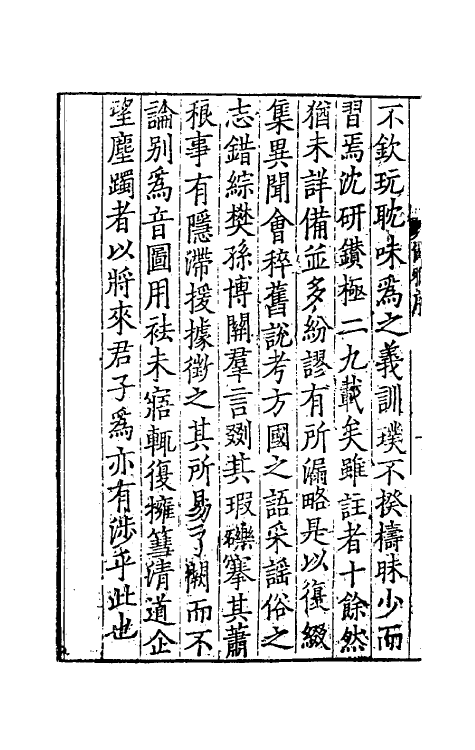 不欽玩耽味爲之義訓璞不揆檮昧少而
習焉沈研鑽極二九載矣雖註者十餘然
猶未詳備並多紛謬有所漏略是以復綴
集異聞會稡舊說考方國之語采謠俗之
志錯綜樊孫博關羣言剟其瑕礫搴其蕭
稂事有隱滯援據徵之其所易了闕而不
論別爲音圖用祛未寤輒復擁篲清道企
望塵躅者以將來君子爲亦有涉乎此也